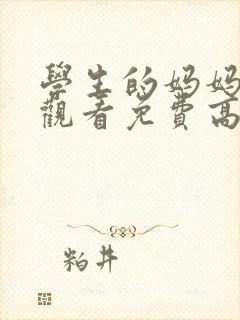 學生的妈妈
觀看免費高
粕井